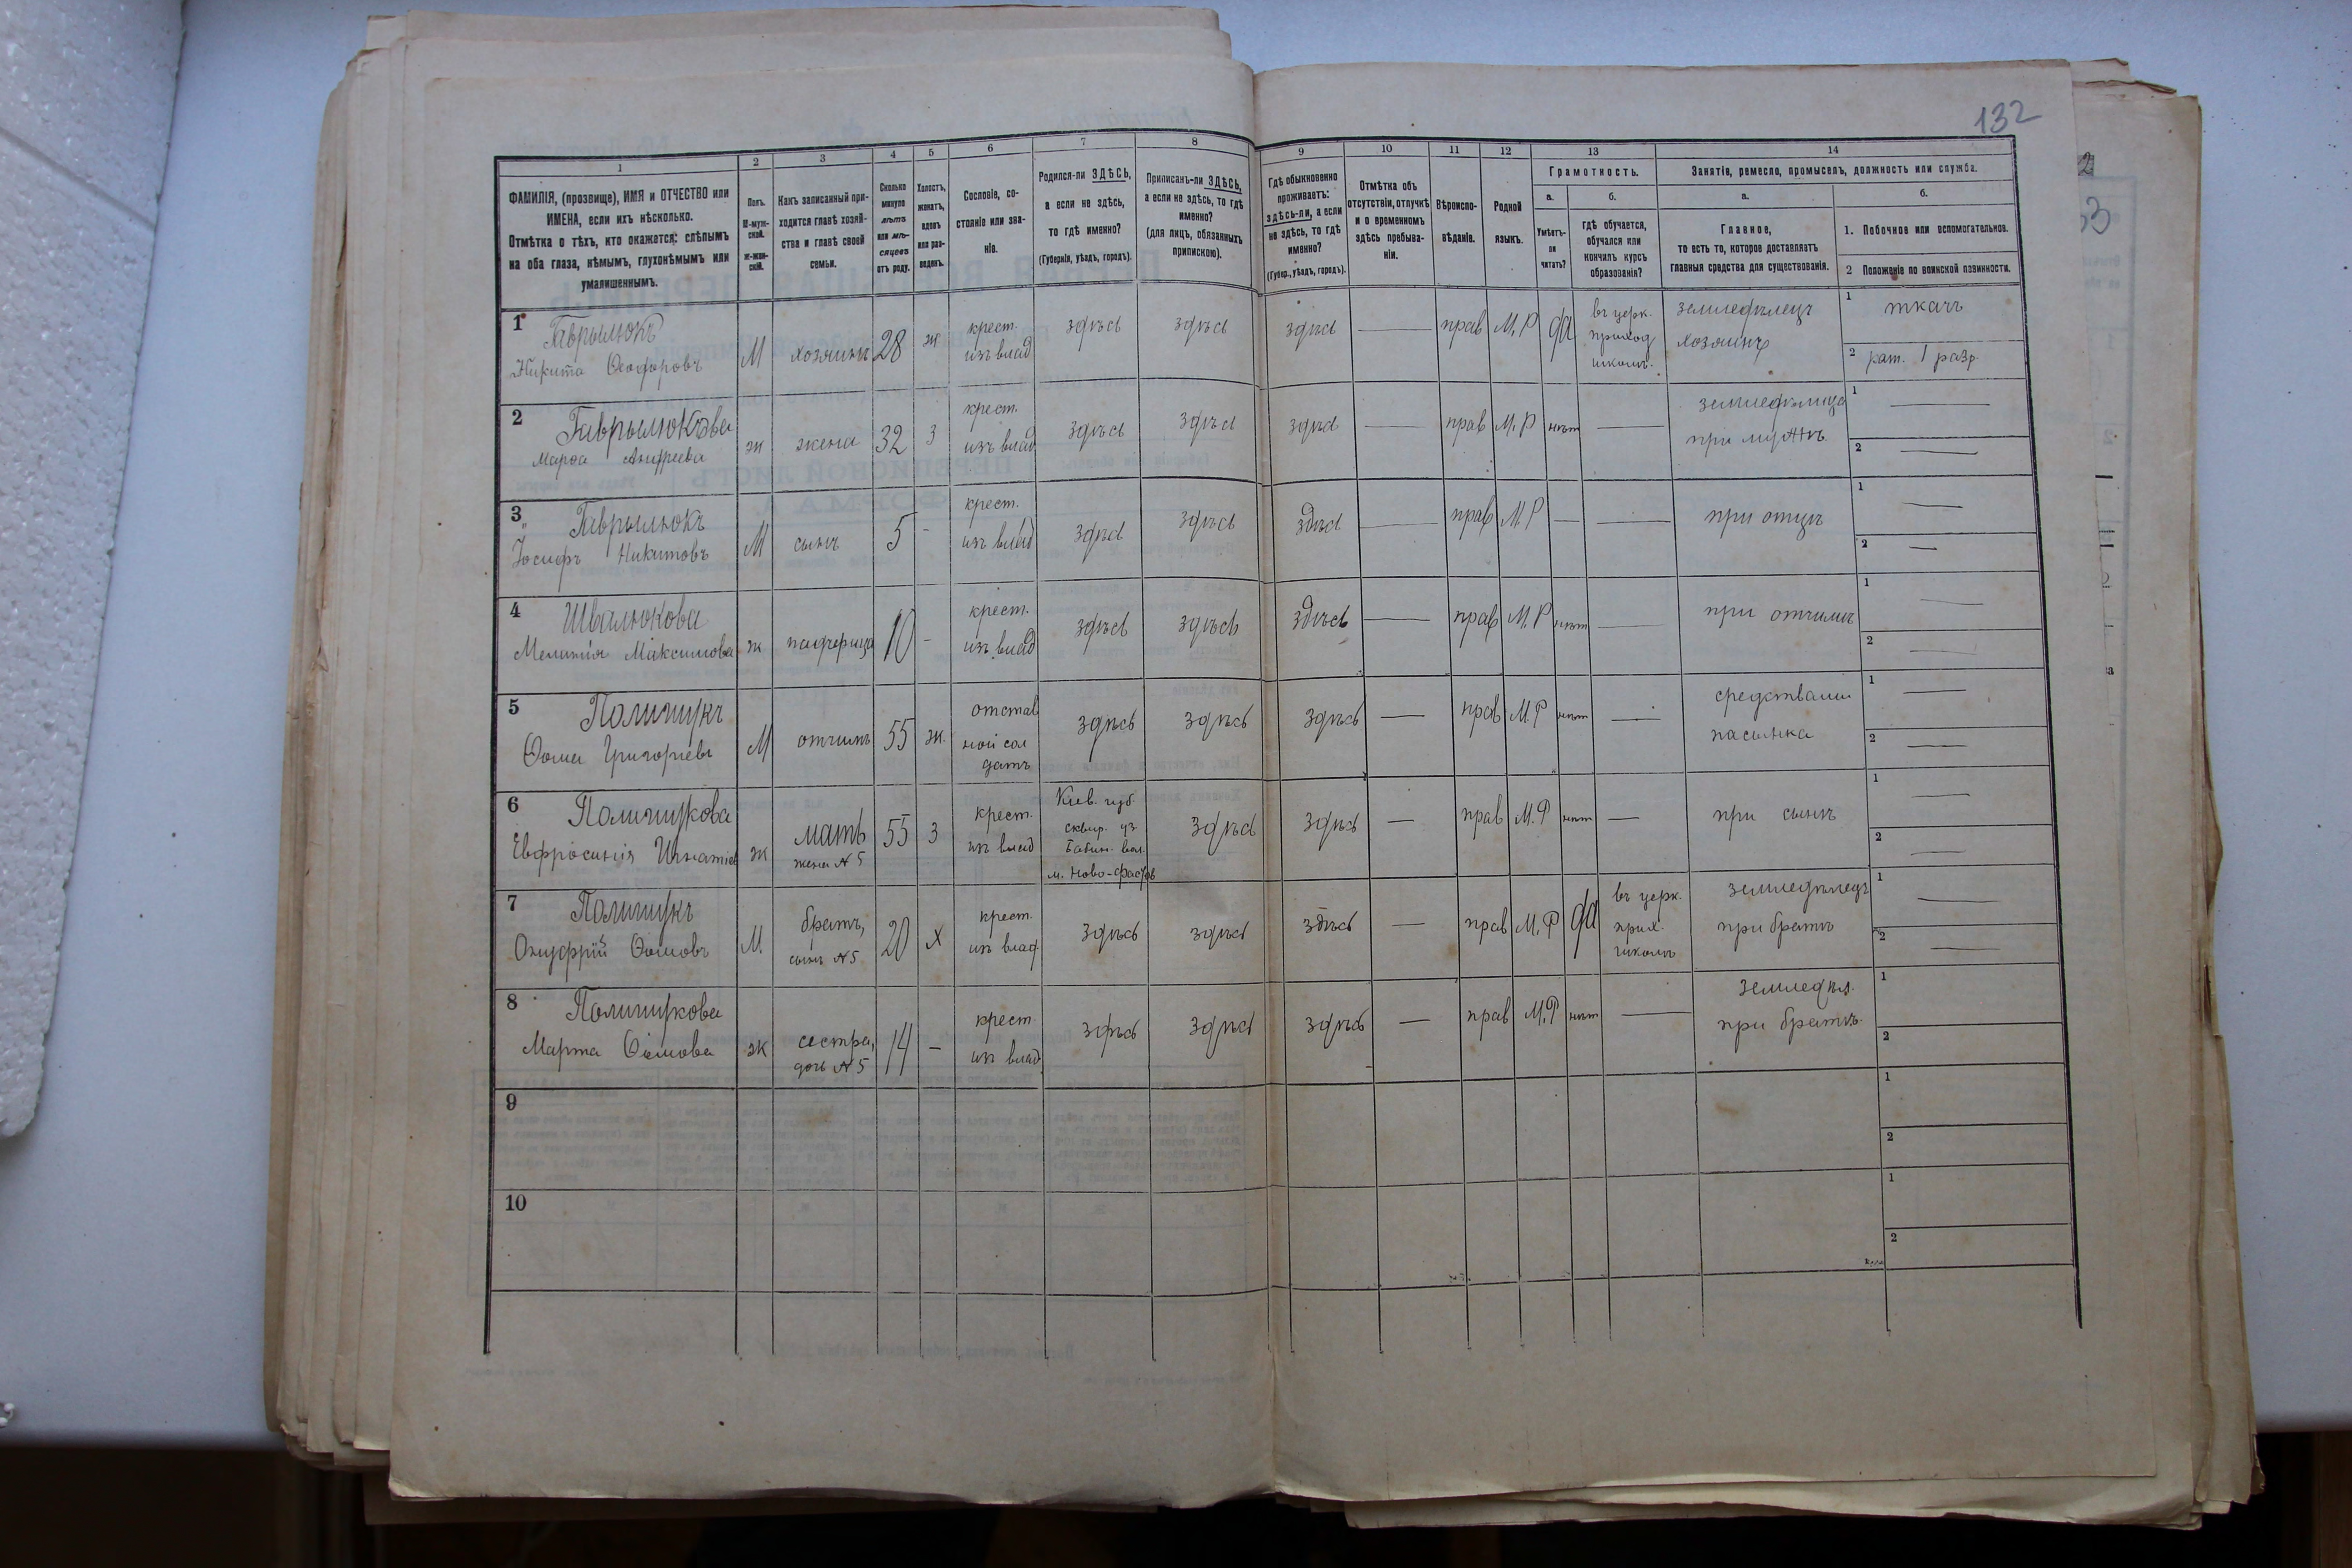 132
1 2 3 4 5 6 7 8 9 10 11 12 13 14
ФАМИЛІЯ, (прозвище), ИМЯ и ОТЧЕСТВО или
ИМЕНА, если ихъ нѣсколько.
Отмѣтка о тѣхъ, кто окажется: слѣпымъ
на оба глаза, нѣмымъ, глухонѣмымъ или
умалишеннымъ.
Полъ.
М-муж-
ской.
Ж-жен-
скій.
Какъ записанный при-
ходится главѣ хозяй-
ства и главѣ своей
семьи.
Сколько
минуло
лѣтъ
или мѣ-
сяцевъ
отъ роду.
Холостъ,
женатъ,
вдовъ
или раз-
веденъ.
Сословіе, со-
стояніе или зва-
ніе.
Родился-ли ЗДѢСЬ,
а если не здѣсь,
то гдѣ именно?
(Губернія, уѣздъ, городъ).
Приписанъ-ли ЗДѢСЬ,
а если не здѣсь, то гдѣ
именно?
(для лицъ, обязанныхъ
припискою).
Гдѣ обыкновенно
проживаетъ:
здѣсь-ли, а если
не здѣсь, то гдѣ
именно?
(Губер., уѣздъ, городъ).
Отмѣтка объ
отсутствіи, отлучкѣ
и о временномъ
здѣсь пребыва-
ніи.
Вѣроиспо-
вѣданіе.
Родной
языкъ.
Грамотность.
а.
Умѣетъ-
ли
читать?
б.
гдѣ обучается,
обучался или
кончилъ курсъ
образованія?
Занятіе, ремесло, промыселъ, должность или служба.
а.
Главное,
то есть то, которое доставляетъ
главныя средства для существованія.
б.
1. Побочное или вспомогательное.
2 Положеніе по воинской повинности.
1 Гаврылюкъ
Никита Ѳеодоровъ
М
хозяинъ
28
ж
крест.
изъ влад
здѣсь
здѣсь
здѣсь
—
прав
М.Р
да
въ церк.
приход
школѣ.
земледѣлецъ
хозяинъ
1 ткачъ
2 рат. 1 разр.
2 Гаврылюкова
Марѳа Андреева
ж
жена
32
З
крест.
изъ влад
здѣсь
здѣсь
здѣсь
—
прав
М.Р
нѣтъ
—
земледѣлица
при мужѣ.
1 —
2 —
3 Гаврылюкъ
Іосифъ Никитовъ
М
сынъ
5
-
крест.
изъ влад
здѣсь
здѣсь
здѣсь
—
прав
М.Р
—
—
при отцѣ
1 —
2 —
4 Швалюкова
Мелания Максимова
ж
падчерица
10
-
крест.
изъ влад
здѣсь
здѣсь
здѣсь
—
прав
М.Р
нѣтъ
—
при отчимѣ
1 —
2 —
5 Полищукъ
Ѳома Григорьевъ
М
отчимъ
55
ж.
отстав
ной сол
датъ
здѣсь
здѣсь
здѣсь
—
прав
М.Р
нѣтъ
—
средствами
пасынка
1 —
2 —
6 Полищукова
Евфросинія Игнатіе
ж
мать
жена № 5
55
З
крест.
изъ влад
Кіев. губ.
сквир. уз
Бабин. вол.
м. Ново-фастов
здѣсь
здѣсь
—
прав
М.Р
нѣтъ
—
при сынѣ
1 —
2 —
7 Полищукъ
Онуфрій Ѳомовъ
М.
братъ,
сынъ № 5
20
Х
крест.
изъ влад
здѣсь
здѣсь
здѣсь
—
прав
М.Р
да
въ церк.
прих.
школѣ
земледѣлецъ
при братѣ
1 —
2 —
8 Полищукова
Марта Ѳомова
ж
сестра,
дочь № 5
14
—
крест.
изъ влад
здѣсь
здѣсь
здѣсь
—
прав
М.Р
нѣтъ
—
земледѣл.
при братѣ.
1
2
9
1
2
10
1
2